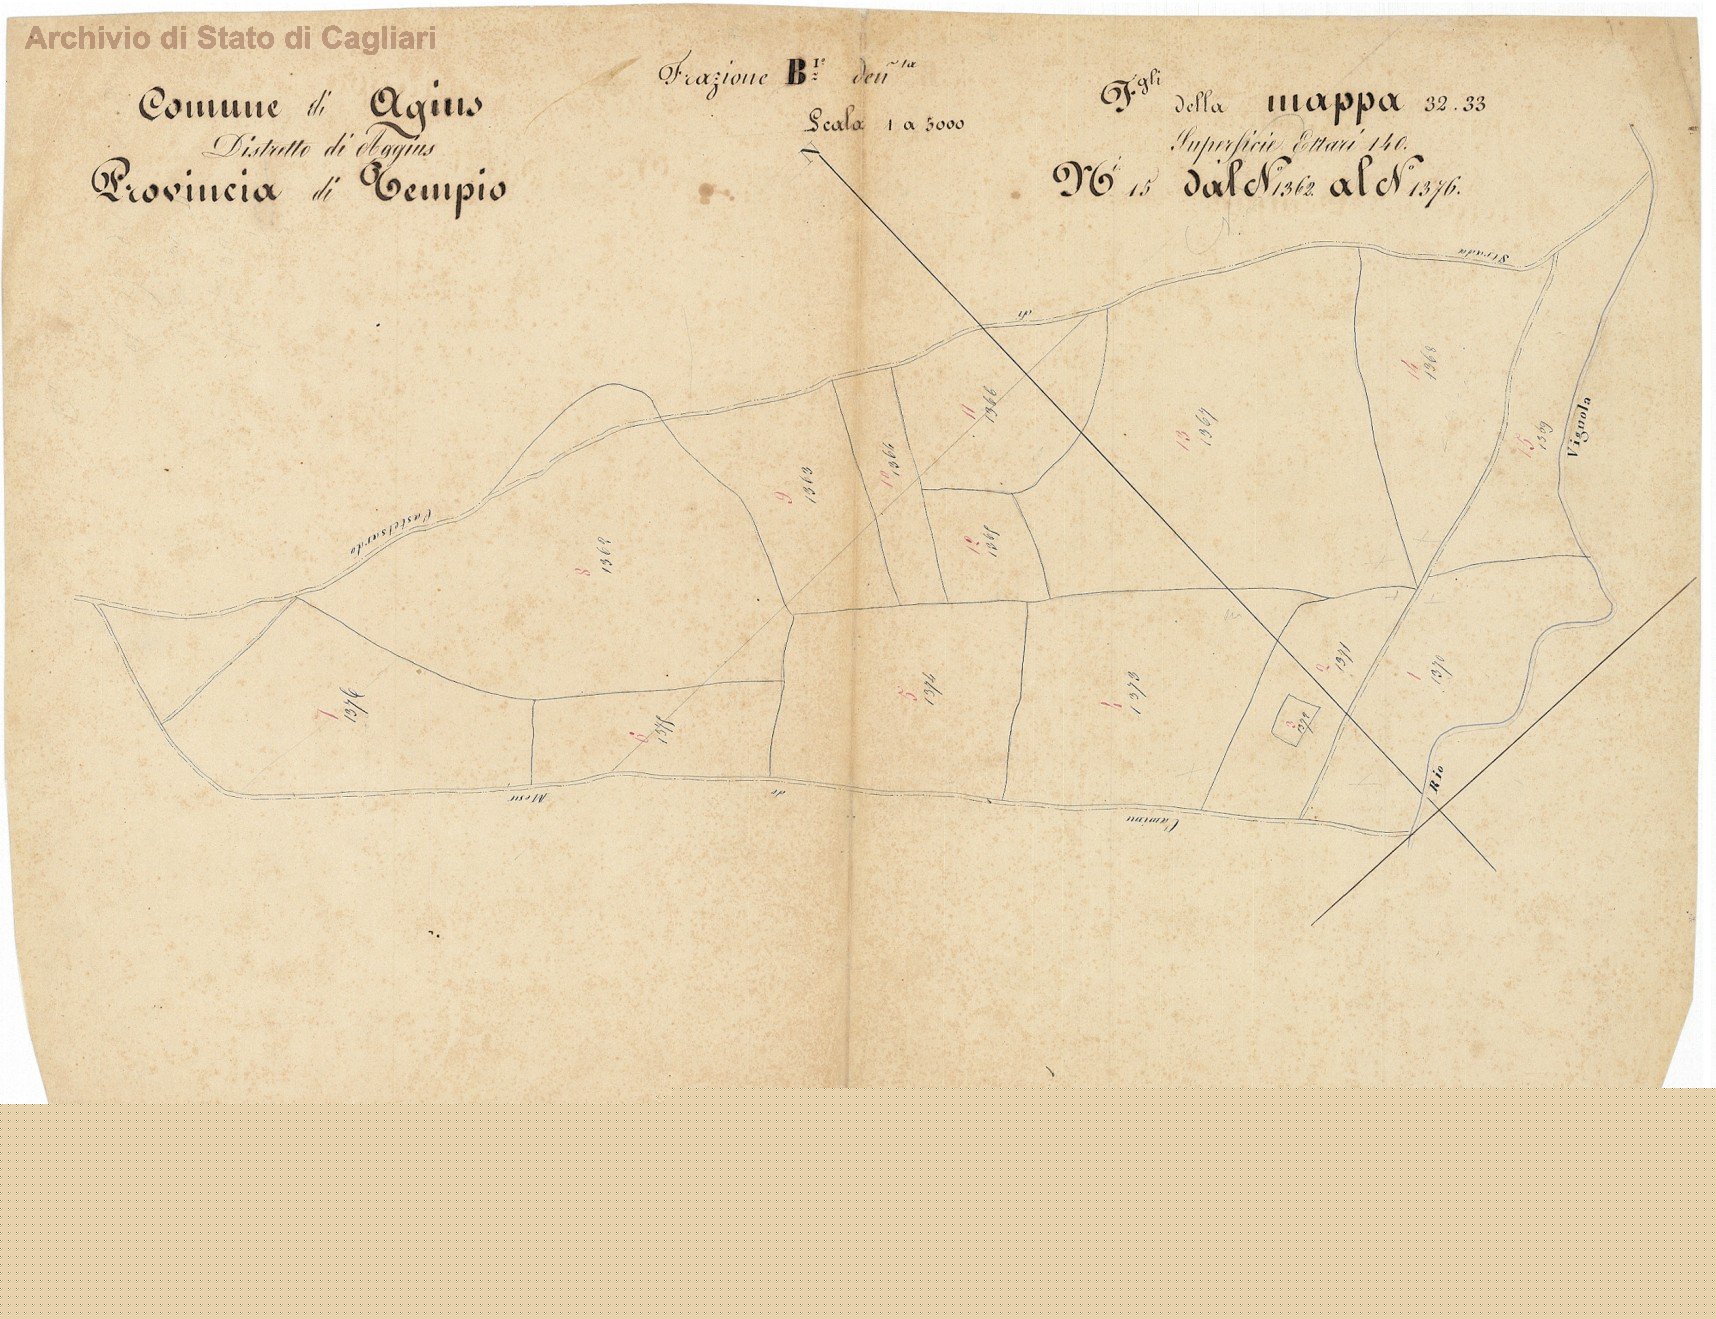 Archivio di Stato di Cagliari
Comune di Agius
Distretto di Aggius
Provincia di Tempio
Frazione B
Scala 1 a 5000
Fgli della mappa 32.33
Superficie Ettari 140.
Ni 15 dal No 1362 al No 1376.
Strada
di
Castelsardo
Vignola
Rio
Caminu
de
Mesu
14
1368
11
1366
13
1367
15
1369
9
1363
10
1364
12
1365
8
1362
7
1376
6
1375
5
1374
4
1373
2
1371
3
1372
1
1370